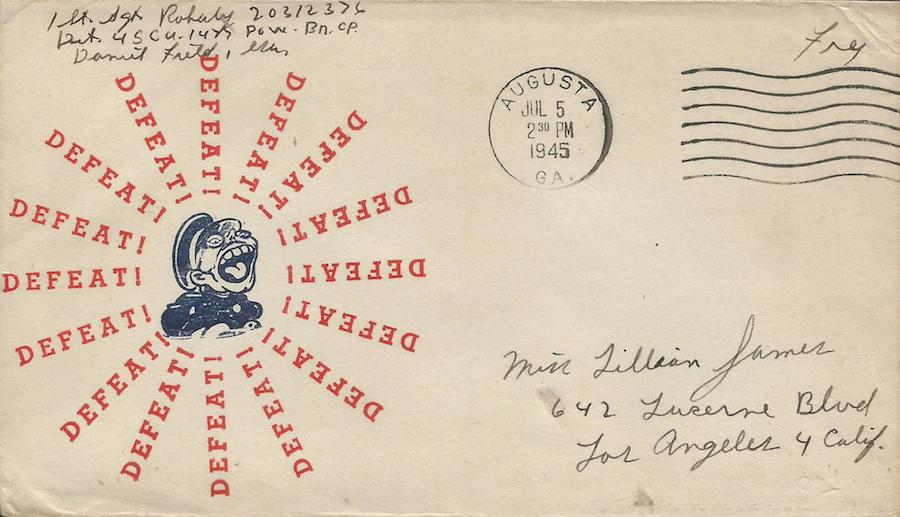 1 St. Sgt. Rohaly 20312376
Det. 4 SCU-1477 POW-Bn. CP.
Daniel Field, Ga.
Free
AUGUSTA
JUL 5
2 30 PM
1945
GA.
DEFEAT!
DEFEAT!
DEFEAT!
DEFEAT!
DEFEAT!
DEFEAT!
DEFEAT!
DEFEAT!
DEFEAT!
DEFEAT!
DEFEAT!
DEFEAT!
DEFEAT!
DEFEAT!
DEFEAT!
DEFEAT!
Miss Lillian James
642 Lucerne Blvd
Los Angeles 4 Calif.